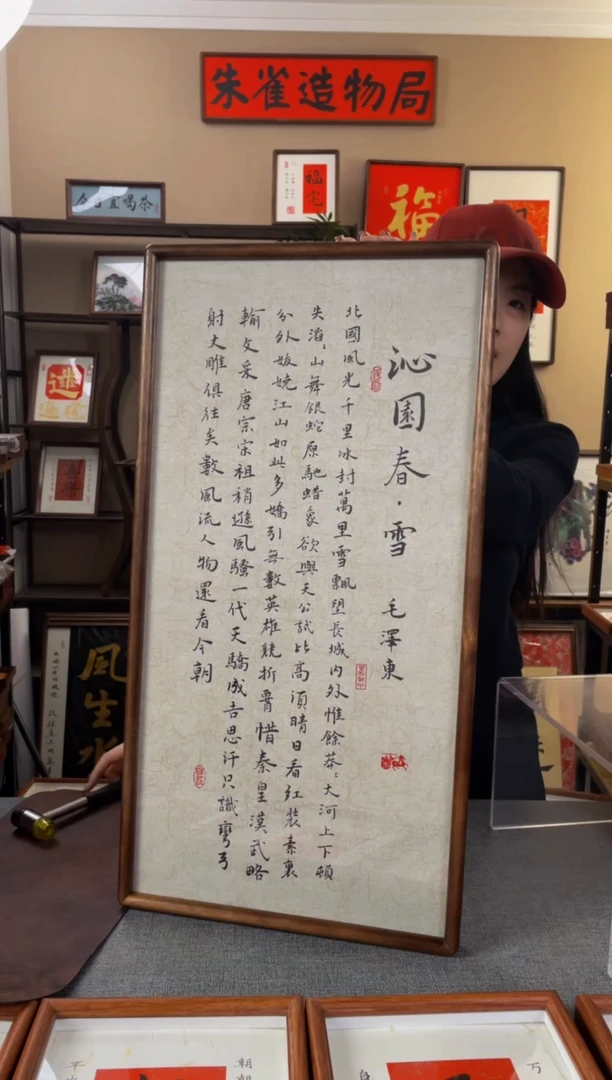 朱雀造物局
福宅
福
且喝茶
沁園春·雪 毛澤東
北國風光千里冰封萬里雪飄望長城内外惟餘莽〻大河上下頓
失滔〻山舞銀蛇原馳蜡象欲與天公試比高須晴日看红装素裹
分外妖娆江山如此多嬌引無數英雄競折腰惜秦皇漢武略
輸文采唐宗宋祖稍遜風騷一代天驕成吉思汗只識彎弓
射大雕俱往矣數風流人物還看今朝
風生水